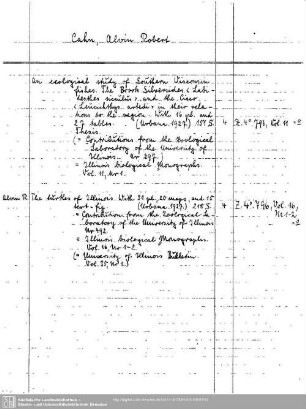 Cahn, Alvin Robert
An ecological study of Southern Wisconsin
fishes. The Brook Silversides (Labi-
desthes sicculus) and the Cisco
(Leucichthys artedi) in their rela-
tions to the region. With 16 pl. and
27 tables. (Urbana 1927.) 151 S. 4 Z. 4° 796, Vol. 11
Thesis
(= Contributions from the Zoological
Laboratory of the University of
Illinois. Nr 297.)
= Illinois Biological Monographs.
Vol. 11, Nr 1.
Alvin R. The turtles of Illinois. With 31 pl., 20 maps, and 15
text-fig. (Urbana 1937.) 218 S. 4 Z. 4° 796, Vol. 16,
Nr 1-2
= Contribution from the Zoological La-
boratory of the University of Illinois
Nr 492.
= Illinois Biological Monographs.
Vol. 16, Nr 1-2.
(= University of Illinois Bulletin
Vol. 35, Nr 1.)